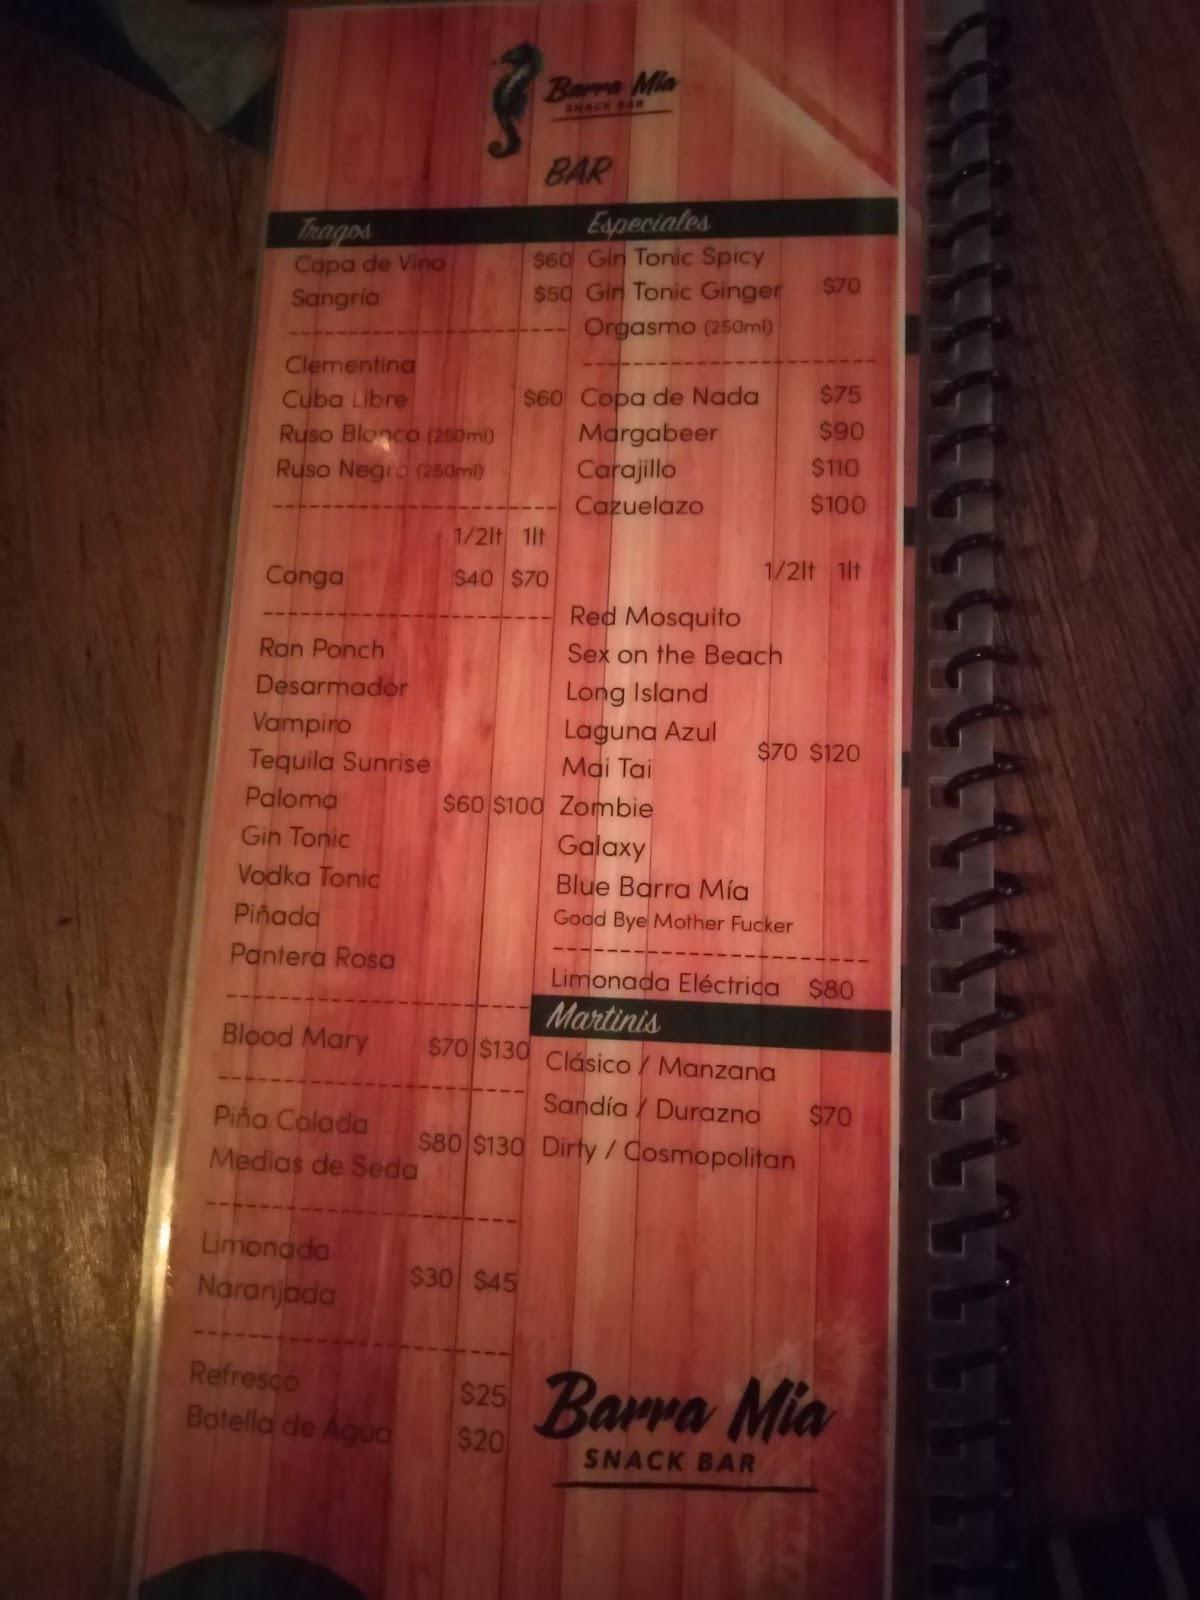 Barra Mia
SNACK BAR
BAR
Tragos
Copa de Vino $60
Sangría $50
Clementina
Cuba Libre $60
Ruso Blanco (250ml)
Ruso Negro (250ml)
1/2lt 1lt
Conga $40 $70
Ron Ponch
Desarmador
Vampiro
Tequila Sunrise
Paloma $60 $100
Gin Tonic
Vodka Tonic
Piñada
Pantera Rosa
Blood Mary $70 $130
Piña Colada
$80 $130
Medias de Seda
Limonada
$30 $45
Naranjada
Refresco $25
Botella de Agua $20
Especiales
Gin Tonic Spicy
Gin Tonic Ginger $70
Orgasmo (250ml)
Copa de Nada $75
Margabeer $90
Carajillo $110
Cazuelazo $100
1/2lt 1lt
Red Mosquito
Sex on the Beach
Long Island
Laguna Azul
$70 $120
Mai Tai
Zombie
Galaxy
Blue Barra Mía
Good Bye Mother Fucker
Limonada Eléctrica $80
Martinis
Clásico / Manzana
Sandía / Durazno $70
Dirty / Cosmopolitan
Barra Mia
SNACK BAR